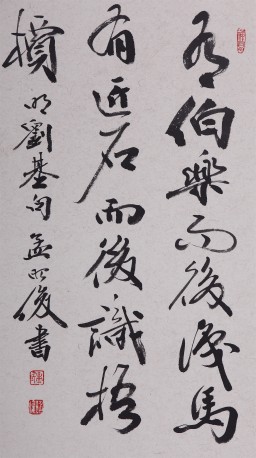 有伯樂而後識馬
有匠石而後識梧
檟 明劉基句 孟昭俊書